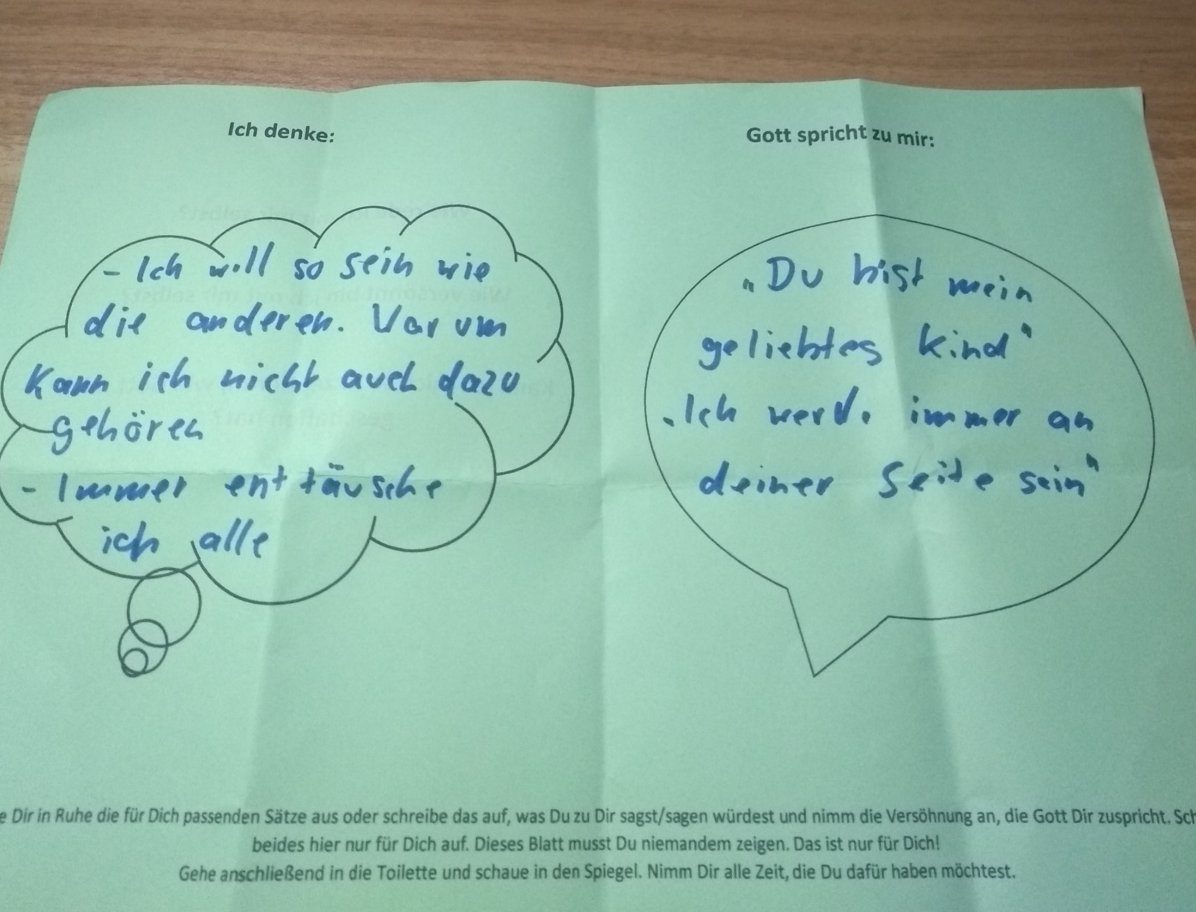 Ich denke:
- Ich will so sein wie
die anderen. Warum
kann ich nicht auch dazu
gehören
- Immer enttäusche
ich alle
Gott spricht zu mir:
„Du bist mein
geliebtes Kind“
„Ich werde immer an
deiner Seite sein“
e Dir in Ruhe die für Dich passenden Sätze aus oder schreibe das auf, was Du zu Dir sagst/sagen würdest und nimm die Versöhnung an, die Gott Dir zuspricht. Sch
beides hier nur für Dich auf. Dieses Blatt musst Du niemandem zeigen. Das ist nur für Dich!
Gehe anschließend in die Toilette und schaue in den Spiegel. Nimm Dir alle Zeit, die Du dafür haben möchtest.